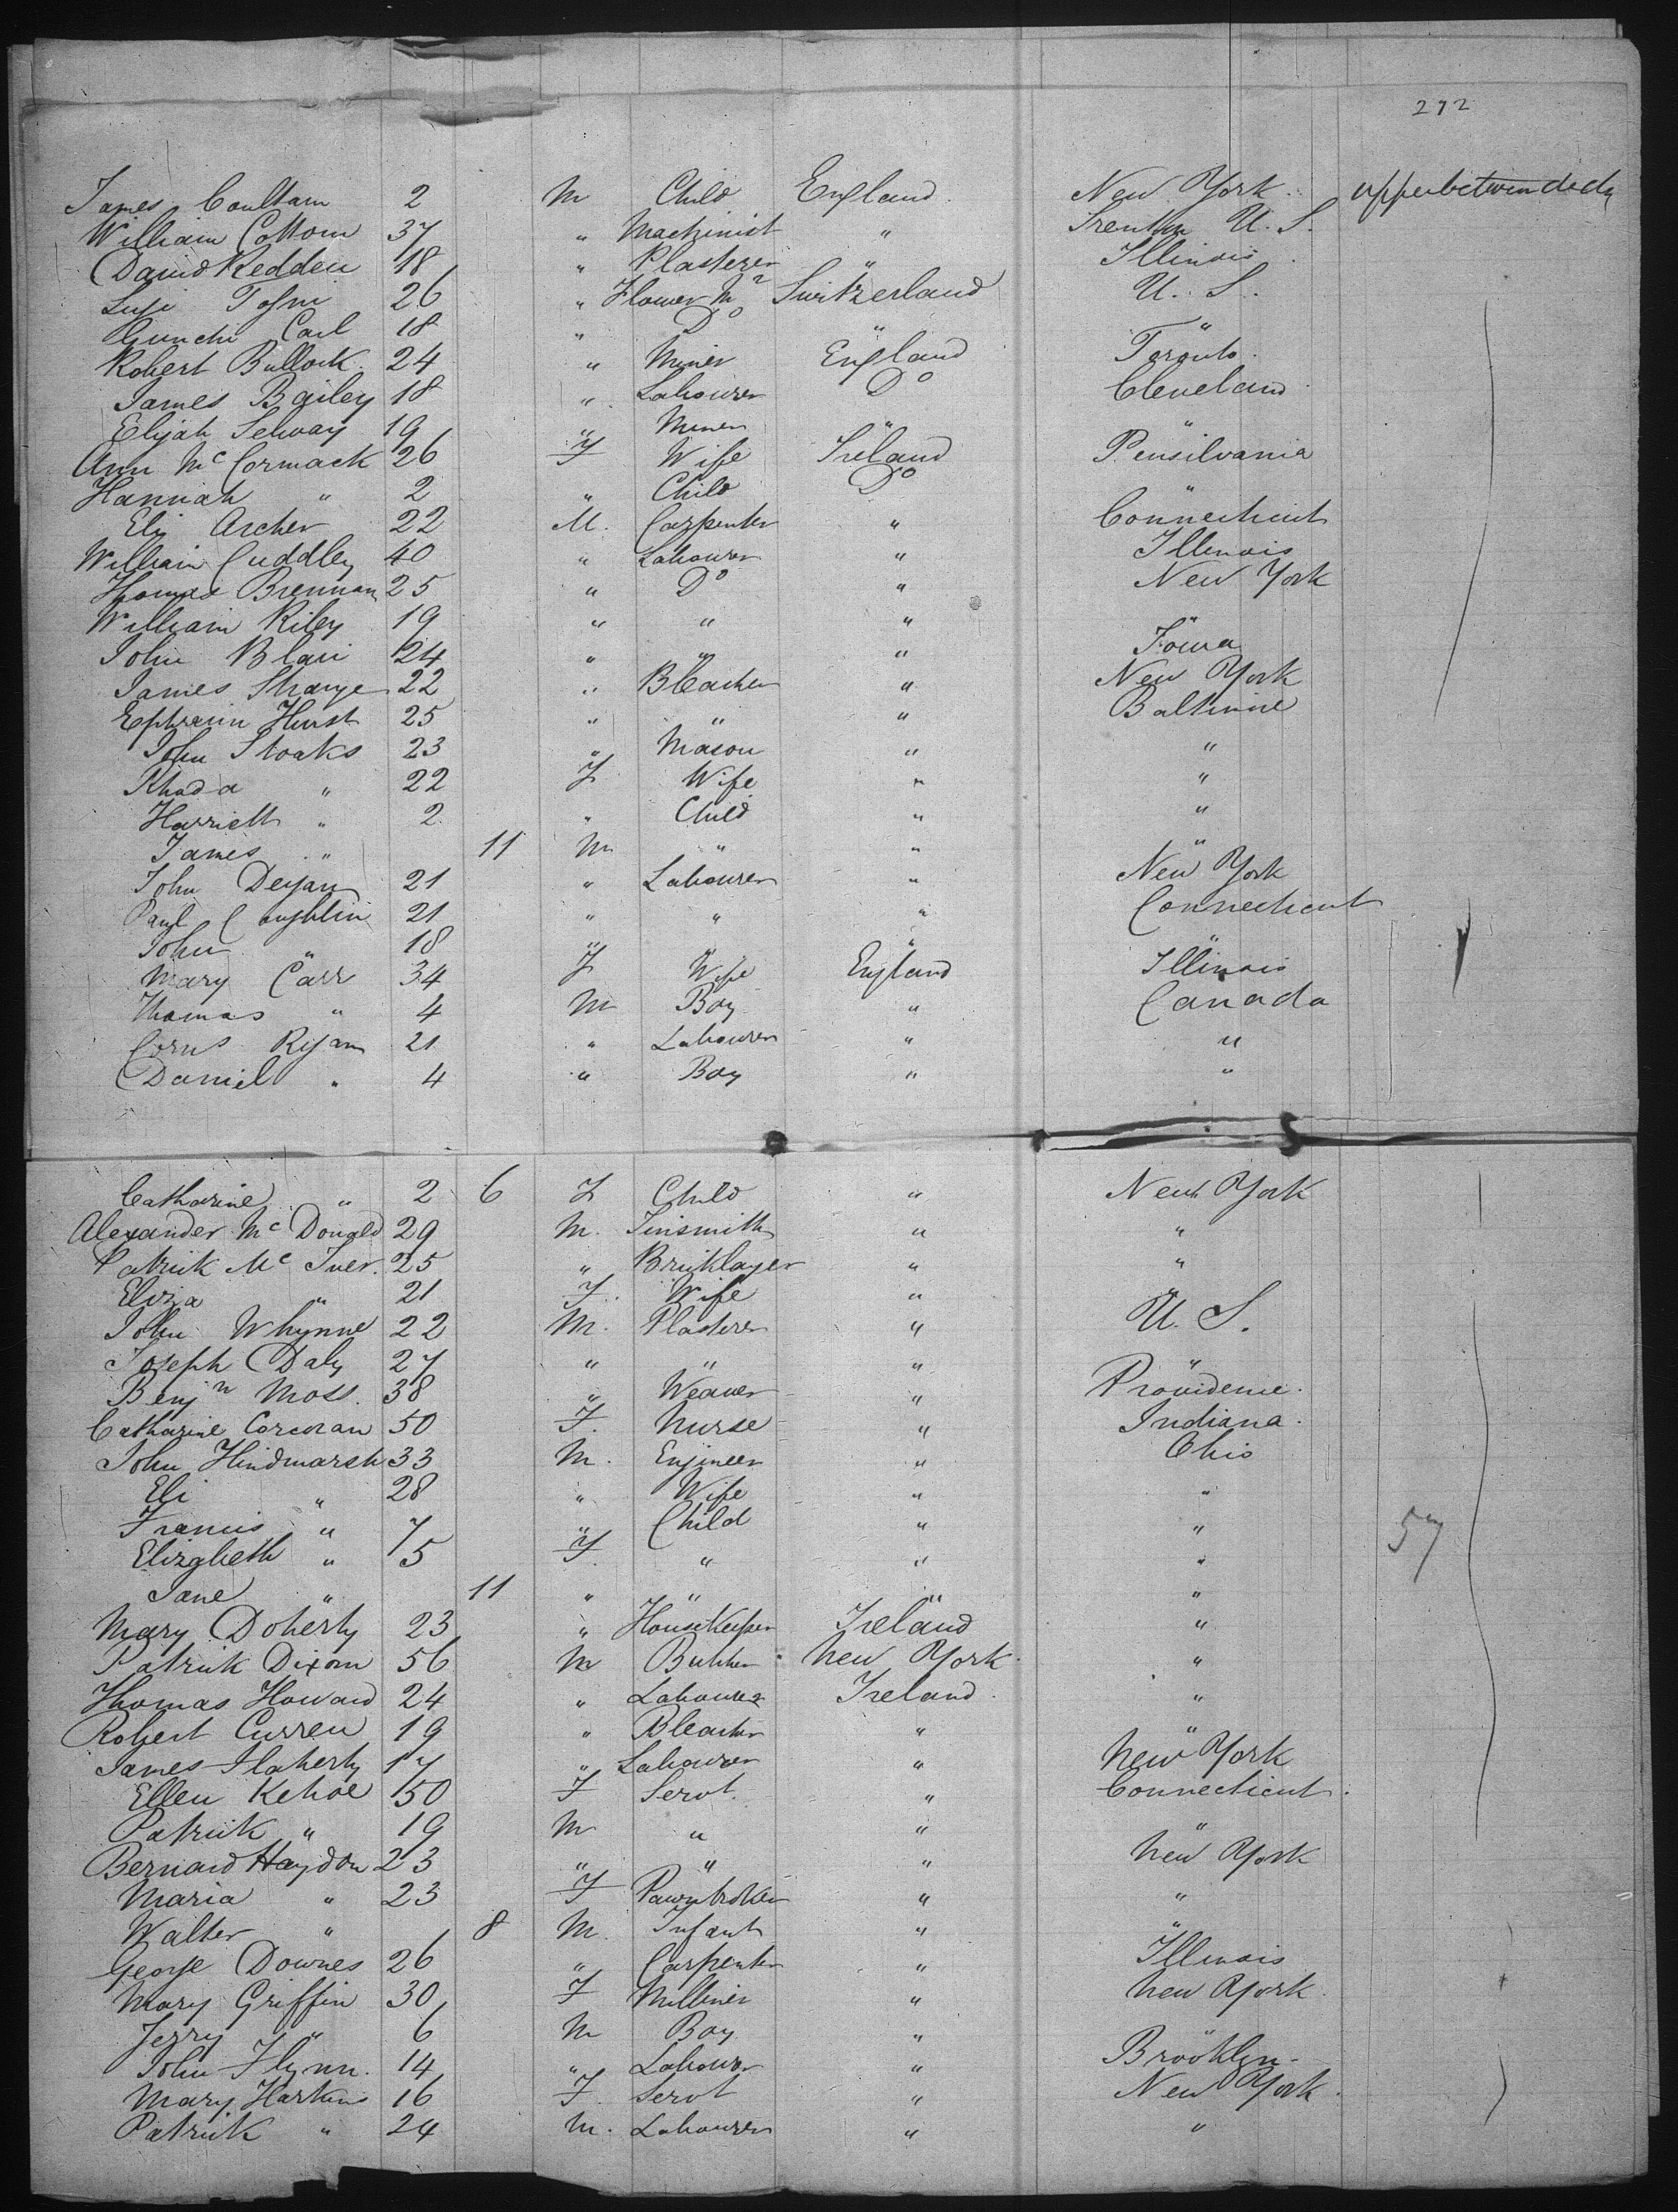 272
James Coultam 2 M Child England New York upper between decks
William Cottom 37 " Machinist " Trenton U. S.
David Redden 18 " Plasterer " Illinois
26 " Flower Mr Switzerland U. S.
Carl 18 " Do " "
Robert Bullock 24 " Miner England Toronto
James Bailey 18 " Labourer Do Cleveland
Elijah Selway 19 " Miner " "
Ann McCormack 26 F Wife Ireland Pensilvania
Hannah " 2 " Child Do "
Eli Archer 22 M. Carpenter " Connecticut
William Cuddley 40 " Labourer " Illinois
Thomas Brennan 25 " Do " New York
William Riley 19 " " " "
John Blair 24 " " " Iowa
James Sharpe 22 " Bleacher " New York
Ephraim Hurst 25 " " " Baltimore
John Stoaks 23 " Mason " "
Rhoda " 22 F Wife " "
Harriett " 2 " Child " "
James " 11 M " " "
John Deyan 21 " Labourer " New York
Coughlin 21 " " " Connecticut
John " 18 " " " "
Mary Carr 34 F Wife England Illinois
Thomas " 4 M Boy " Canada
Corns Ryan 21 " Labourer " "
Daniel " 4 " Boy " "
Catharine " 2 6 F Child " New York
Alexander McDonald 29 M. Tinsmith " "
Patrick McIver 25 " Bricklayer " "
Eliza " 21 F. Wife " "
John Whynne 22 M. Plasterer " U. S.
Joseph Daly 27 " " " "
Benjn Moss. 38 " Weaver " Providence.
Catharine Corcoran 50 F. Nurse " Indiana.
John Hindmarsh 33 M. Engineer " Ohio
Eli " 28 " Wife " "
Francis " 7 " Child " "
Elizabeth " 5 F. " " " 57
Jane " 11 " " " "
Mary Doherty 23 " HouseKeeper Ireland "
Patrick Dixon 56 M Butcher New York "
Thomas Howard 24 " Labourer Ireland "
Robert Curren 19 " Bleacher " "
James Flaherty 17 " Labourer " New York
Ellen Kehoe 50 F Servt. " Connecticut.
Patrick " 19 M " " "
Bernard Haydon 23 " " " New York
Maria " 23 F Pawnbroker " "
Walter " 8 M. Infant " "
George Downes 26 " Carpenter " Illinois
Mary Griffin 30 F Milliner " New York
Jerry " 6 M Boy " "
John Flynn. 14 " Labourer " Brooklyn
Mary Harkins 16 F. Servt " New York
Patrick " 24 M. Labourer " "